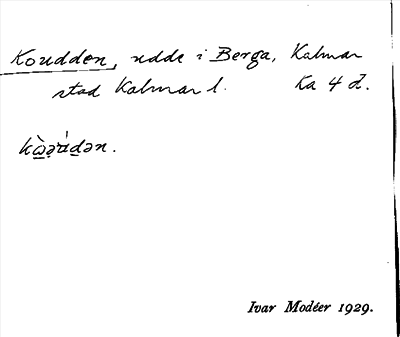 Koudden, udde i Berga, Kalmar
stad Kalmar l. Ka 4 d.
Ivar Modéer 1929.